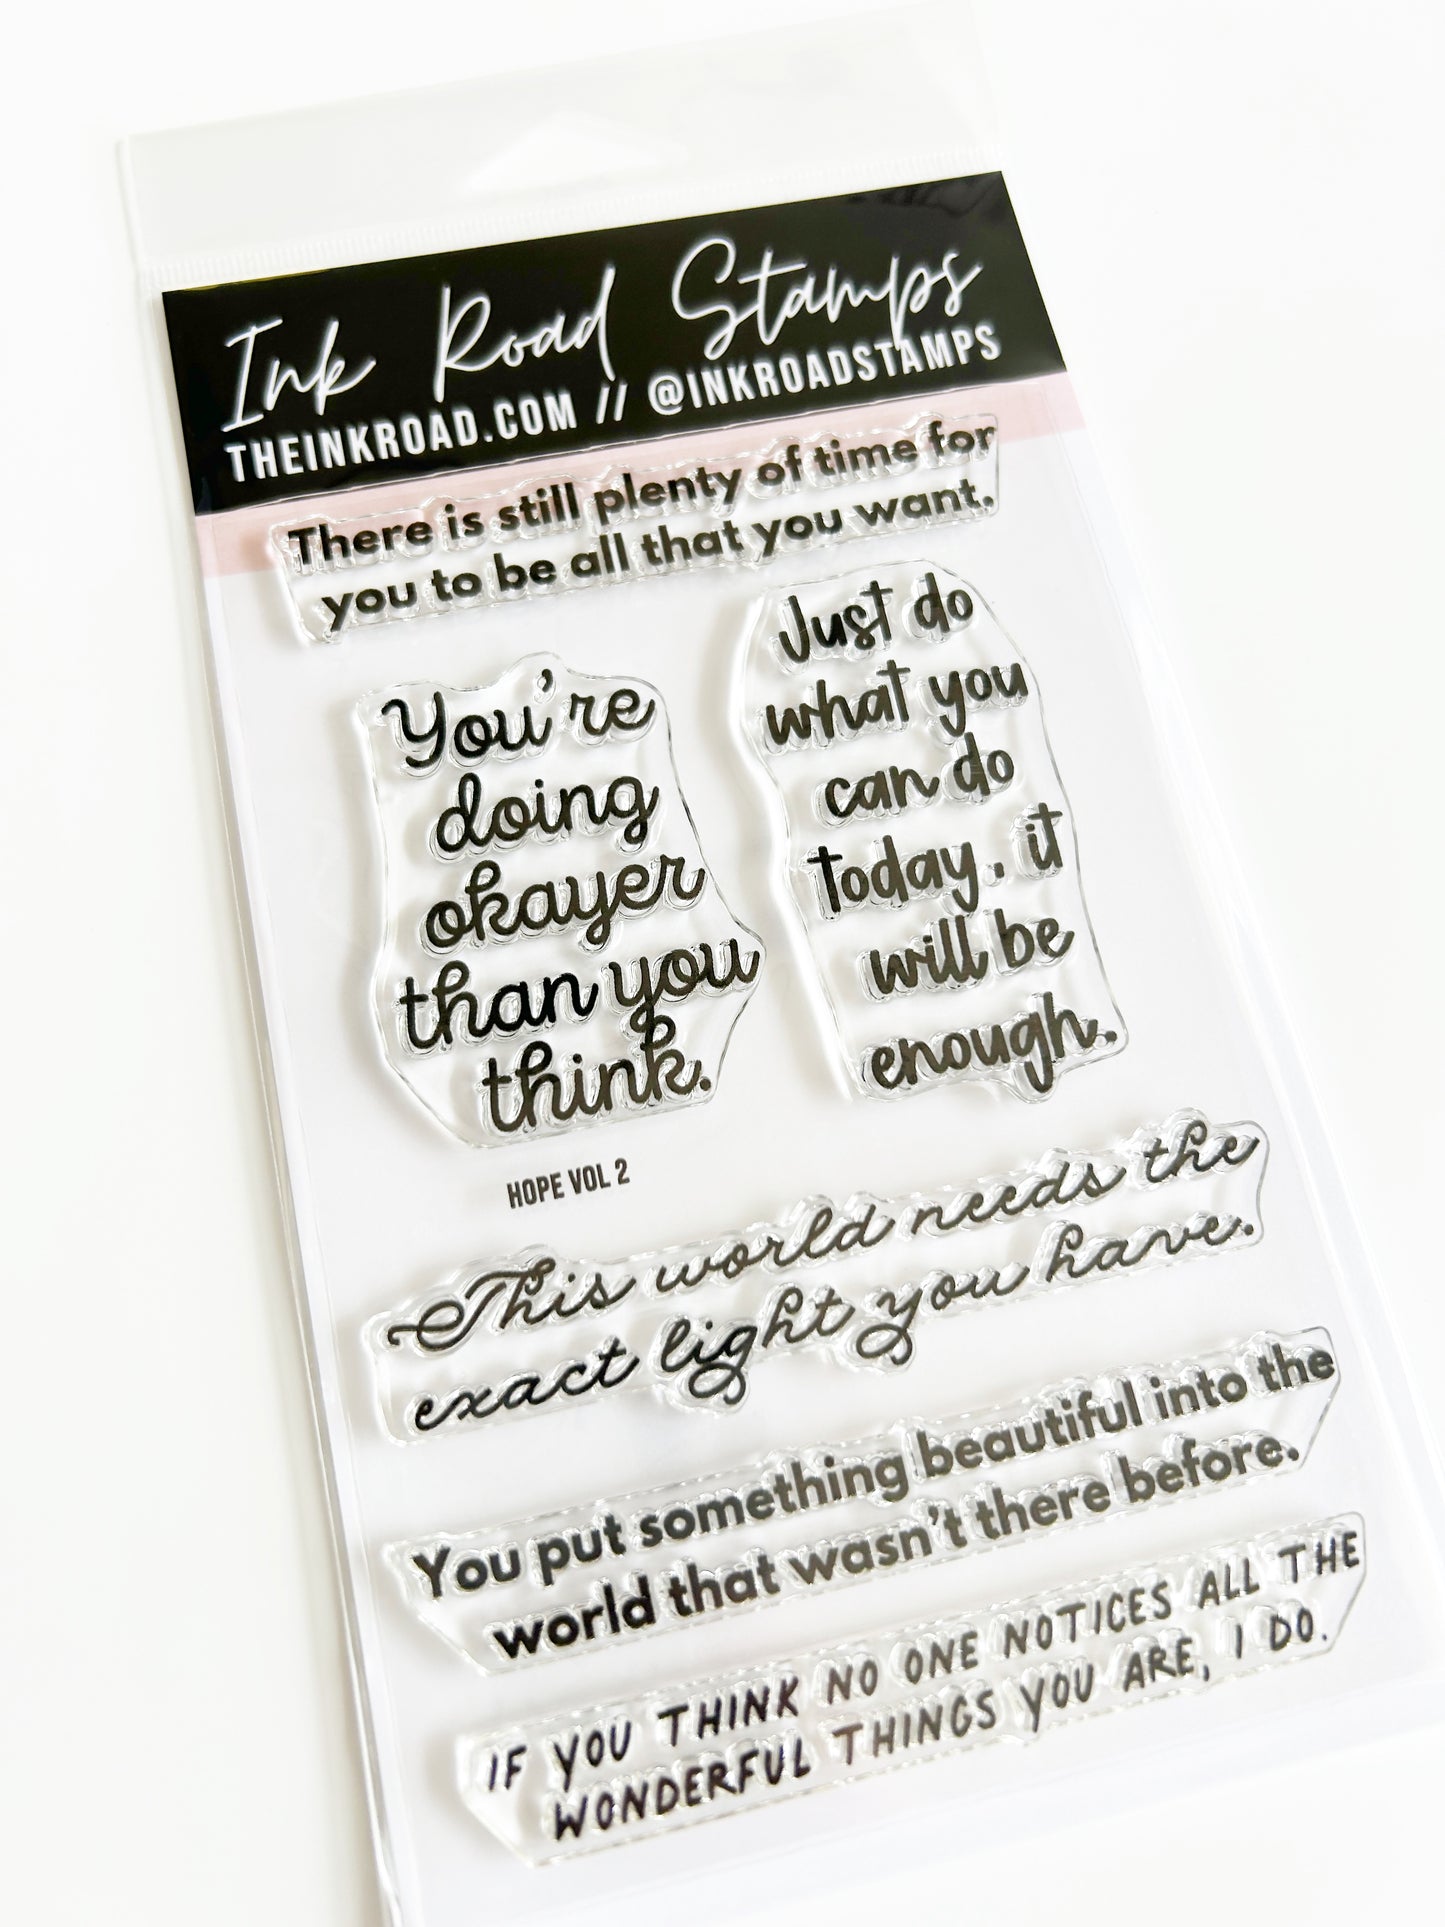 Ink Road Stamps
THEINKROAD.COM // @INKROADSTAMPS
There is still plenty of time for
you to be all that you want.
You're
doing
okayer
than you
think.
Just do
what you
can do
today. it
will be
enough.
HOPE VOL 2
This world needs the
exact light you have.
You put something beautiful into the
world that wasn't there before.
IF YOU THINK NO ONE NOTICES ALL THE
WONDERFUL THINGS YOU ARE, I DO.